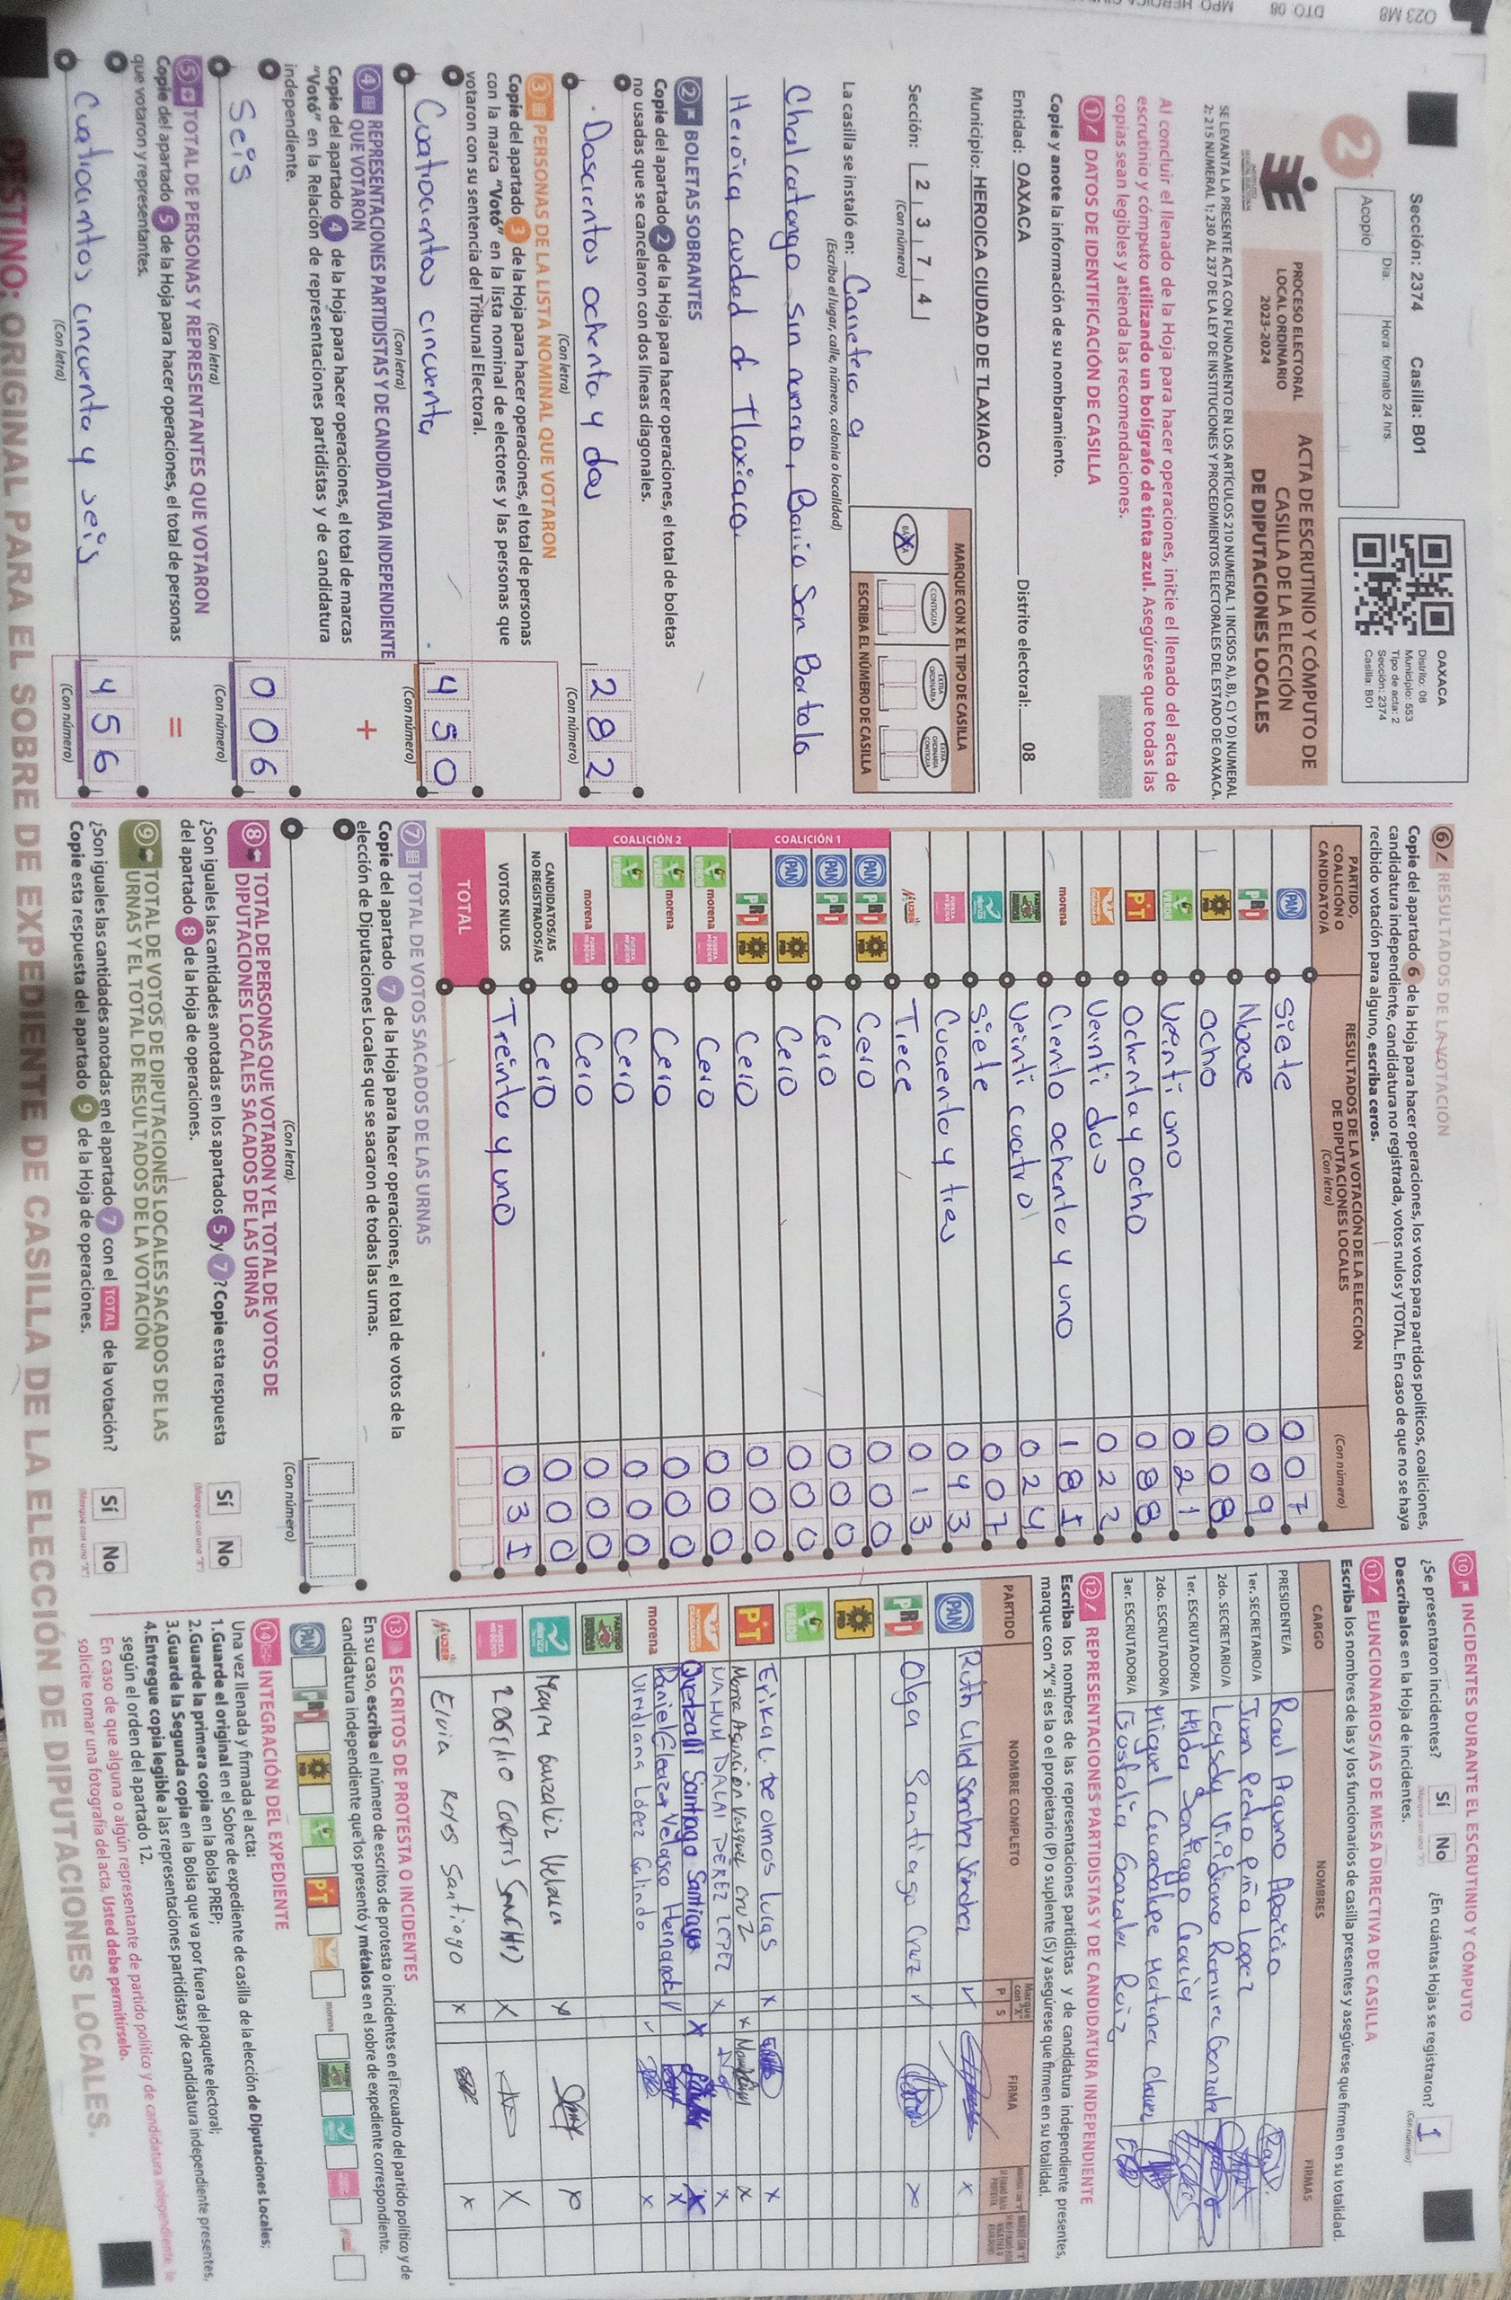 O23 M8
DTO 08
Sección: 2374 Casilla: B01
Día: Hora: formato 24 hrs.
Acopio
OAXACA
Distrito: 08
Municipio: 553
Tipo de acta: 2
Sección: 2374
Casilla: B01
2
PROCESO ELECTORAL
LOCAL ORDINARIO
2023-2024
ACTA DE ESCRUTINIO Y CÓMPUTO DE
CASILLA DE LA ELECCIÓN
DE DIPUTACIONES LOCALES
SE LEVANTA LA PRESENTE ACTA CON FUNDAMENTO EN LOS ARTÍCULOS 210 NUMERAL 1 INCISOS A), B), C) Y D) NUMERAL
2; 215 NUMERAL 1; 230 AL 237 DE LA LEY DE INSTITUCIONES Y PROCEDIMIENTOS ELECTORALES DEL ESTADO DE OAXACA.
Al concluir el llenado de la Hoja para hacer operaciones, inicie el llenado del acta de
escrutinio y cómputo utilizando un bolígrafo de tinta azul. Asegúrese que todas las
copias sean legibles y atienda las recomendaciones.
1 DATOS DE IDENTIFICACIÓN DE CASILLA
Copie y anote la información de su nombramiento.
Entidad: OAXACA Distrito electoral: 08
Municipio: HEROICA CIUDAD DE TLAXIACO
Sección: 2 3 7 4
(Con número)
MARQUE CON X EL TIPO DE CASILLA
X CONTIGUA EXTRAORDINARIA EXTRAORDINARIA CONTIGUA
ESCRIBA EL NÚMERO DE CASILLA
La casilla se instaló en: Carretera a
(Escriba el lugar, calle, número, colonia o localidad)
Chalcatongo sin numero, Barrio San Bartolo
Heroica ciudad d Tlaxiaco.
2 BOLETAS SOBRANTES
Copie del apartado 2 de la Hoja para hacer operaciones, el total de boletas
no usadas que se cancelaron con dos líneas diagonales.
Doscientos ochenta y dos 2 8 2
(Con letra) (Con número)
3 PERSONAS DE LA LISTA NOMINAL QUE VOTARON
Copie del apartado 3 de la Hoja para hacer operaciones, el total de personas
con la marca "Votó" en la lista nominal de electores y las personas que
votaron con su sentencia del Tribunal Electoral.
Cuatrocientos cincuenta 4 5 0
(Con letra) (Con número)
4 REPRESENTACIONES PARTIDISTAS Y DE CANDIDATURA INDEPENDIENTE
QUE VOTARON
+
Copie del apartado 4 de la Hoja para hacer operaciones, el total de marcas
"Votó" en la Relación de representaciones partidistas y de candidatura
independiente.
Seis 0 0 6
(Con letra) (Con número)
5 TOTAL DE PERSONAS Y REPRESENTANTES QUE VOTARON
=
Copie del apartado 5 de la Hoja para hacer operaciones, el total de personas
que votaron y representantes.
Cuatrocientos cincuenta y seis 4 5 6
(Con letra) (Con número)
6 RESULTADOS DE LA VOTACIÓN
Copie del apartado 6 de la Hoja para hacer operaciones, los votos para partidos políticos, coaliciones,
candidatura independiente, candidatura no registrada, votos nulos y TOTAL. En caso de que no se haya
recibido votación para alguno, escriba ceros.
PARTIDO, COALICIÓN O CANDIDATO/A
RESULTADOS DE LA VOTACIÓN DE LA ELECCIÓN
DE DIPUTACIONES LOCALES
(Con letra) (Con número)
PAN Siete 0 0 7
PRI Nueve 0 0 9
PRD Ocho 0 0 8
VERDE Veinti uno 0 2 1
PT Ochenta y ocho 0 8 8
Veinti dos 0 2 2
morena Ciento ochenta y uno 1 8 1
Veinti cuatro 0 2 4
Siete 0 0 7
FUERZA MÉXICO Cuarenta y tres 0 4 3
MUJER Trece 0 1 3
COALICIÓN 1
PAN PRI PRD Cero 0 0 0
PAN PRI Cero 0 0 0
PAN PRD Cero 0 0 0
PRI PRD Cero 0 0 0
COALICIÓN 2
VERDE morena FUERZA MÉXICO Cero 0 0 0
VERDE morena Cero 0 0 0
VERDE FUERZA MÉXICO Cero 0 0 0
morena FUERZA MÉXICO Cero 0 0 0
CANDIDATOS/AS NO REGISTRADOS/AS Cero 0 0 0
VOTOS NULOS Treinta y uno 0 3 1
TOTAL
7 TOTAL DE VOTOS SACADOS DE LAS URNAS
Copie del apartado 7 de la Hoja para hacer operaciones, el total de votos de la
elección de Diputaciones Locales que se sacaron de todas las urnas.
(Con letra) (Con número)
8 TOTAL DE PERSONAS QUE VOTARON Y EL TOTAL DE VOTOS DE
DIPUTACIONES LOCALES SACADOS DE LAS URNAS
¿Son iguales las cantidades anotadas en los apartados 5 y 7? Copie esta respuesta
del apartado 8 de la Hoja de operaciones.
Sí No
(Marque con una "X")
9 TOTAL DE VOTOS DE DIPUTACIONES LOCALES SACADOS DE LAS
URNAS Y EL TOTAL DE RESULTADOS DE LA VOTACIÓN
¿Son iguales las cantidades anotadas en el apartado 7 con el TOTAL de la votación?
Copie esta respuesta del apartado 9 de la Hoja de operaciones.
Sí No
(Marque con una "X")
10 INCIDENTES DURANTE EL ESCRUTINIO Y CÓMPUTO
¿Se presentaron incidentes? Sí No ¿En cuántas Hojas se registraron? 1
(Marque con una "X") (Con número)
Descríbalos en la Hoja de incidentes.
11 FUNCIONARIOS/AS DE MESA DIRECTIVA DE CASILLA
Escriba los nombres de las y los funcionarios de casilla presentes y asegúrese que firmen en su totalidad.
CARGO NOMBRES FIRMAS
PRESIDENTE/A Raul Aquino Aparicio
1er. SECRETARIO/A Juan Pedro Piña Lopez
2do. SECRETARIO/A Leysdy Viridiana Ramirez Gonzalez
1er. ESCRUTADOR/A Hilda Santiago Garcia
2do. ESCRUTADOR/A Miguel Guadalupe Maturan Chavez
3er. ESCRUTADOR/A Eustolia Gonzalez Ruiz
12 REPRESENTACIONES PARTIDISTAS Y DE CANDIDATURA INDEPENDIENTE
Escriba los nombres de las representaciones partidistas y de candidatura independiente presentes,
marque con "X" si es la o el propietario (P) o suplente (S) y asegúrese que firmen en su totalidad.
PARTIDO NOMBRE COMPLETO Marque con "X" P S FIRMA
PAN Ruth Sanchez Sanchez
PRI Olga Santiago Cruz
PRD
VERDE
PT Erika L. De Olmos Lucas X
Maria Asunción Vasquez Cruz X
NAHUM DALAI PEREZ LOPEZ X
Quetzalli Santiago Santiago X
morena Daniel Eleazar Velasco Hernandez
Viridiana López Galindo
Mayra Gonzalez Velasco X
ROGELIO CORTES SANCHEZ X
MUJER Elvia Reyes Santiago X
13 ESCRITOS DE PROTESTA O INCIDENTES
En su caso, escriba el número de escritos de protesta o incidentes en el recuadro del partido político y de
candidatura independiente que los presentó y métalos en el sobre de expediente correspondiente.
PAN PRI PRD VERDE PT morena
14 INTEGRACIÓN DEL EXPEDIENTE
Una vez llenada y firmada el acta:
1.Guarde el original en el Sobre de expediente de casilla de la elección de Diputaciones Locales;
2.Guarde la primera copia en la Bolsa PREP;
3.Guarde la Segunda copia en la Bolsa que va por fuera del paquete electoral;
4.Entregue copia legible a las representaciones partidistas y de candidatura independiente presentes,
según el orden del apartado 12.
En caso de que alguna o algún representante de partido político y de candidatura independiente le
solicite tomar una fotografía del acta, Usted debe permitírselo.
DESTINO: ORIGINAL PARA EL SOBRE DE EXPEDIENTE DE CASILLA DE LA ELECCIÓN DE DIPUTACIONES LOCALES.